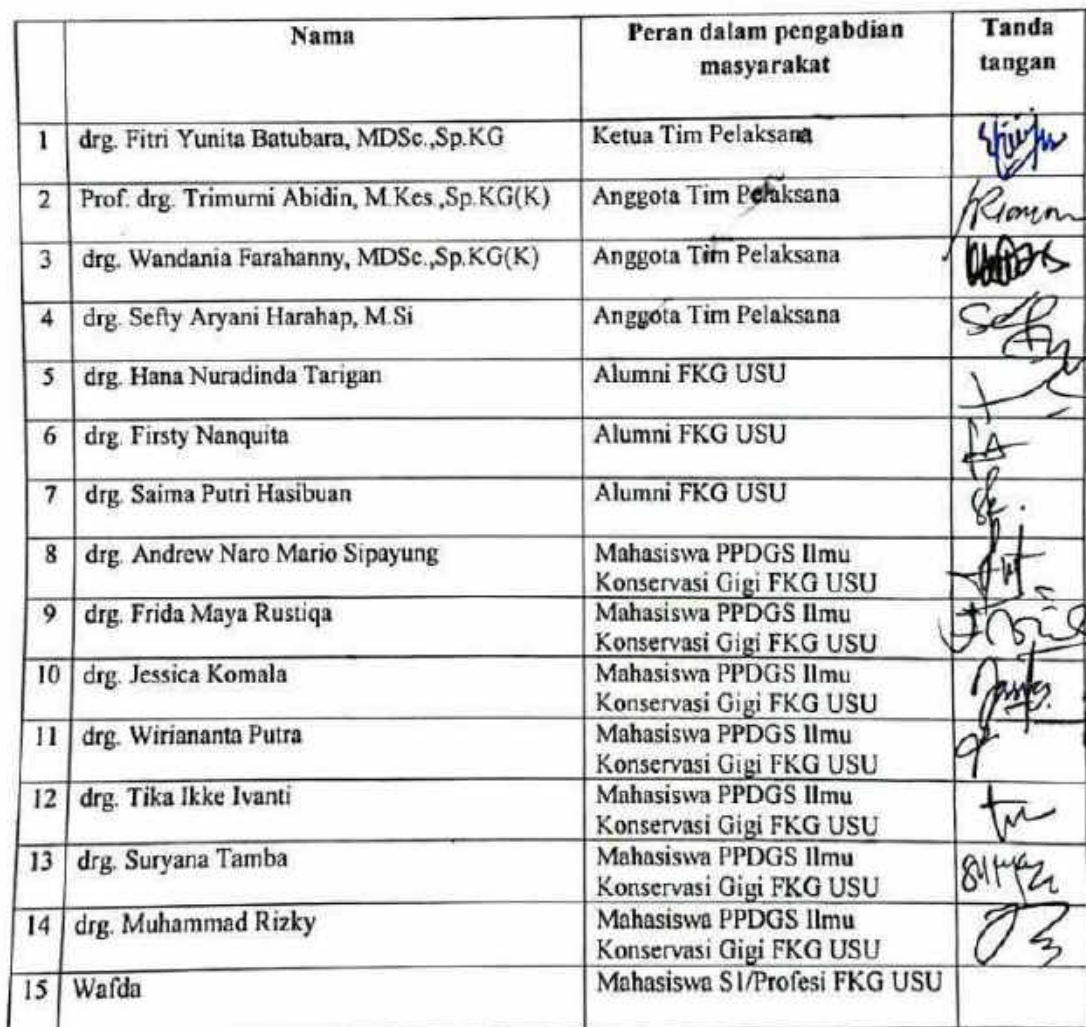 Nama
Peran dalam pengabdian
masyarakat
Tanda
tangan
1 drg. Fitri Yunita Batubara, MDSc.,Sp.KG Ketua Tim Pelaksana
2 Prof. drg. Trimurni Abidin, M.Kes.,Sp.KG(K) Anggota Tim Pelaksana
3 drg. Wandania Farahanny, MDSc.,Sp.KG(K) Anggota Tim Pelaksana
4 drg. Sefty Aryani Harahap, M.Si Anggota Tim Pelaksana
5 drg. Hana Nuradinda Tarigan Alumni FKG USU
6 drg. Firsty Nanquita Alumni FKG USU
7 drg. Saima Putri Hasibuan Alumni FKG USU
8 drg. Andrew Naro Mario Sipayung Mahasiswa PPDGS Ilmu
Konservasi Gigi FKG USU
9 drg. Frida Maya Rustiqa Mahasiswa PPDGS Ilmu
Konservasi Gigi FKG USU
10 drg. Jessica Komala Mahasiswa PPDGS Ilmu
Konservasi Gigi FKG USU
11 drg. Wiriananta Putra Mahasiswa PPDGS Ilmu
Konservasi Gigi FKG USU
12 drg. Tika Ikke Ivanti Mahasiswa PPDGS Ilmu
Konservasi Gigi FKG USU
13 drg. Suryana Tamba Mahasiswa PPDGS Ilmu
Konservasi Gigi FKG USU
14 drg. Muhammad Rizky Mahasiswa PPDGS Ilmu
Konservasi Gigi FKG USU
15 Wafda Mahasiswa S1/Profesi FKG USU